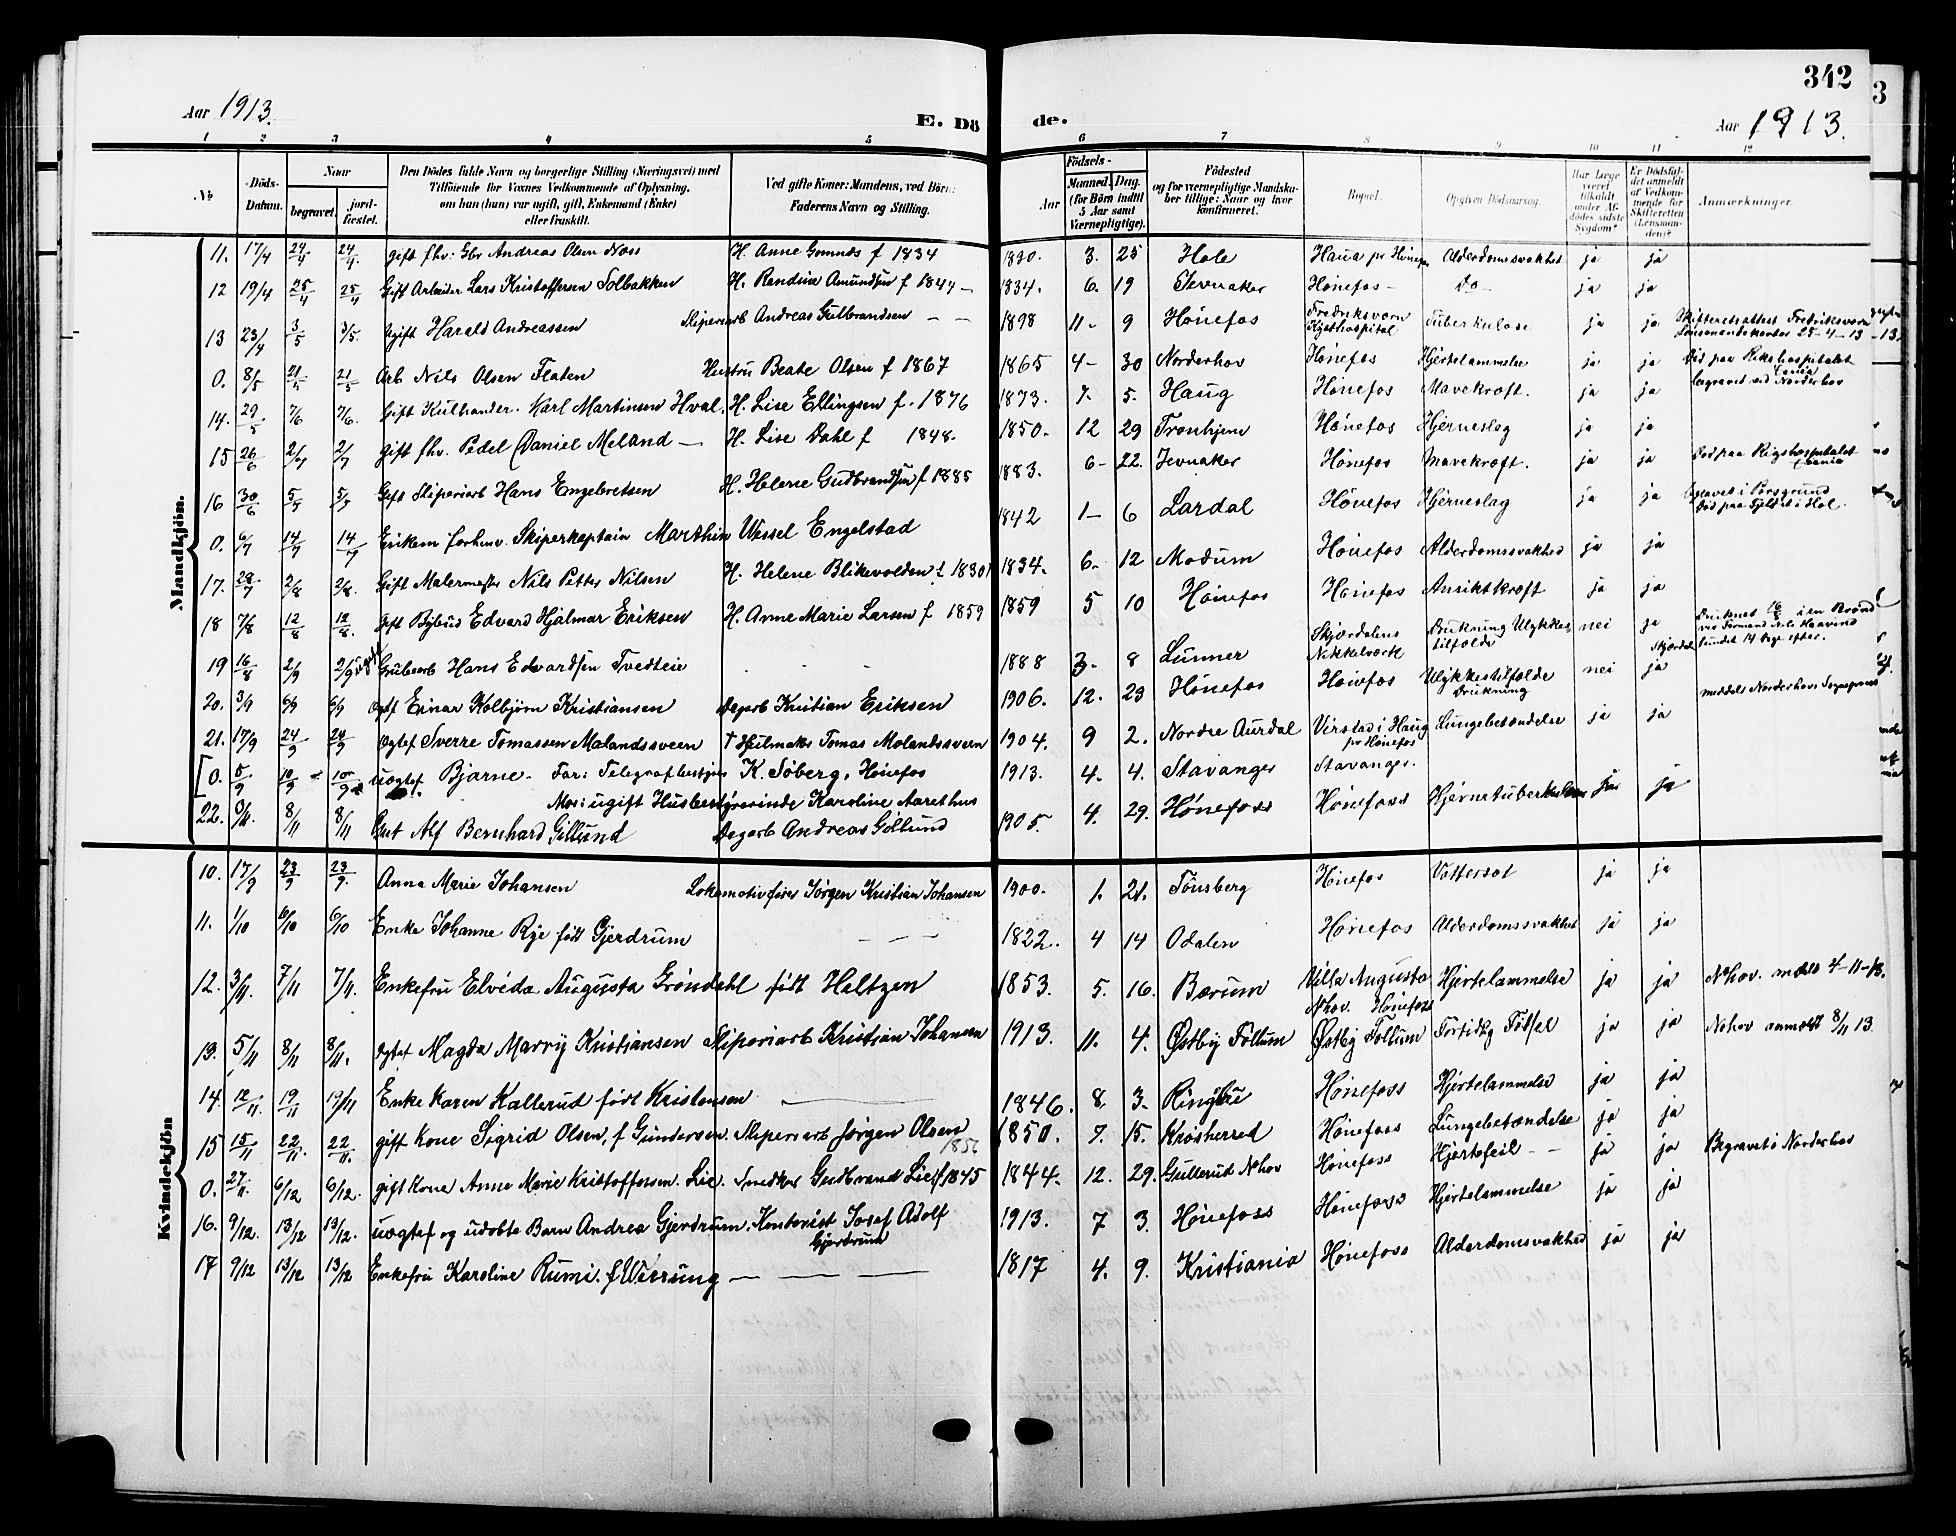 342
3
Aar 1913.
E. Dö de.
Aar 1913.
1 2 3 4 5 6 7 8 9 10 11 12
No
Döds-Datum.
Naar
begravet.
jord-fæstet.
Den Dödes fulde Navn og borgerlige Stilling (Næringsvei) med
Tilföiende for Voxnes Vedkommende af Oplysning,
om han (hun) var ugift, gift, Enkemand (Enke)
eller fraskilt.
Ved gifte Koner: Mandens, ved Börn:
Faderens Navn og Stilling.
Födsels-
Aar
Maaned. Dag.
(for Börn indtil
5 Aar samt
Værnepligtige).
Födested
og for værnepligtige Mandska-
ber tillige: Naar og hvor
konfirmeret.
Bopæl.
Opgiven Dödsaarsag.
Har Læge
været
tilkaldt
under Af-
dödes sidste
Sygdom?
Er Dödsfal-
det anmeldt
af Vedkom-
mende for
Skifteretten
(Lensman-
den)?
Anmærkninger.
Mandkjön.
11. 17/4 24/4 24/4 gift fhv. Gbr Andreas Olsen Næss H. Anne f 1834 3. 25 Hole Haua pr Hönefos Alderdomssvakhet ja ja
12 19/4 25/4 25/4 Gift Arbeider Lars Kristoffersen Solbakken H. Randine Amundsen f 1844 – 1834. 6. 19 Jevnaker Hönefos – Do – ja ja
13 23/4 3/5 3/5. Harald Andreassen Sliperiarb Andreas Gulbrandsen – – 1898 11– 9 Hönefos Fredriksvern Kysthospital Tuberkulose ja ja Skifteretsattest Fredriksvern Lensmandskontor 25–4–13
0. 8/5 21/5 21/5 Arb Nils Olsen Flaten Hustru Beate Olsen f 1867 1865 4– 30 Norderhov Hönefos Hjertelammelse ja ja Död paa Rikshospitalet begravet ved Norderhov
14. 29/5 7/6 7/6. Gift Kulhandler. Karl Martinsen Hval. H. Lise Ellingsen f. 1876 1873. 7. 5. Haug Hönefos Mavekræft. ja ja
15 26/6 2/7 2/7 gift fhv. Pedel Daniel Meland – H. Lise Dahl f 1848. 1850. 12 29 Tronhjem Hönefos Hjerneslag ja ja
16 30/6 5/7 5/7 Gift Sliperiarb Hans Engebretsen H. Helene Gudbrandsen f 1885 1883. 6– 22. Jevnaker Hönefos Mavekræft. ja ja Död paa Rigshospitalet
0. 6/7 14/7 14/7 Enkem forhenv. Skipskaptain Marthin Wessel Engelstad 1842 1– 6 Lardal Hönefos Hjerneslag ja ja begravet i Porsgrund
17. 29/7 2/8 2/8. Gift Malermester Nils Petter Nilsen H. Helene Blikevolden f. 1830 1834. 6– 12 Modum Hönefos Alderdomssvakhed ja ja
18 7/8 12/8 12/8. gift Bybud Edvard Hjalmar Eriksen H. Anne Marie Larsen f 1859 1859 5 10 Hönefos Hönefos Ansiktkræft ja ja
19 16/8 2/9 2/9 Ugift Grubearb Hans Edvardsen Tvedteie 1888 3– 8 Lunner Skjærdalens Nikkelverk Drukning Ulykkestilfælde nei ja Druknet i en Brönd fundet 14 Dage efter.
20. 3/9 6/9 6/9 Egtef Einar Kolbjörn Kristiansen Dagarb Kristian Eriksen 1906. 12. 23 Hönefos Hönefos Ulykkestilfælde Drukning nei ja
21. 17/9 24/9 24/9 Egtef Sverre Tomassen Molandsveen Hjulmaker Tomas Molandsveen 1904. 9 2. Nordre Aurdal Virstad i Haug pr Hönefos Lungebetændelse ja ja
[0. 5/9 10/9 10/9 uegtef Bjarne – Far: Telegrafbestyrer K. Söberg, Hönefos 1913. 4. 4. Stavanger Stavanger.
Mor: ugift Husbestyrerinde Karoline Aarethus
22. 3/11. 8/11 8/11 Gut Alf Bernhard Gillund Dagarb Andreas Gillund 1905. 4. 29. Hönefoss Hönefoss Hjernetuberkulose ja ja
Kvindekjön
10. 17/9 23/9 23/9. Anna Marie Johansen Lokomotivförer Jörgen Kristian Johansen 1900. 1. 21. Tönsberg Hönefos Vattersot ja ja
11. 1/10 6/10 6/10 Enke Johanne Rye födt Gjerdrum – – – 1822. 4 14 Odalen Hönefos Alderdomssvakhet ja ja
12. 3/11. 7/11 7/11. Enkefru Elvida Augusta Gröndahl födt Heltzen 1853. 5. 16. Bærum Villa Augusta Nhov. Hönefoss Hjertelammelse ja ja Nhov. meldt 4–11–13.
13. 5/11 8/11 8/11. Egtef Magda Marry Kristiansen Sliperiarb Kristian Johansen 1913. 11. 4. Östby Follum Östby Follum Fortidlig Fötsel ja ja Nohov anmeldt 8/11 13.
14. 12/11. 19/11 19/11 Enke Karen Kallerud födt Kristensen 1846. 8 3. Ringebu Hönefoss Hjertelammelse ja ja
15 15/11 22/11. 22/11. gift Kone Sigrid Olsen, f Gundersen. Sliperiarb Jörgen Olsen 1850. 7. 15. Krödsherred Hönefoss Lungebetændelse ja ja
0. 27/11. 6/12 6/12. gift Kone Anne Marie Kristoffersen Lie. Smedker Gudbrand Lie f 1845 1844. 12. 29. Gullerud Nhov Hönefoss Hjertefeil – – ja ja Begravet i Norderhov
16. 9/12. 13/12 13/12. uegtef og udöbte Barn Andrea Gjerdrum. Kontorist Josef Adolf Gjerdrum 1913. 7 3. Hönefoss Hönefoss Hjertelammelse ja ja
17 9/12 13/12 13/12 Enkefru Karoline Rumi. f Werrung – – – – 1817 4. 9. Kristiania Hönefoss Alderdomsvakhed ja ja